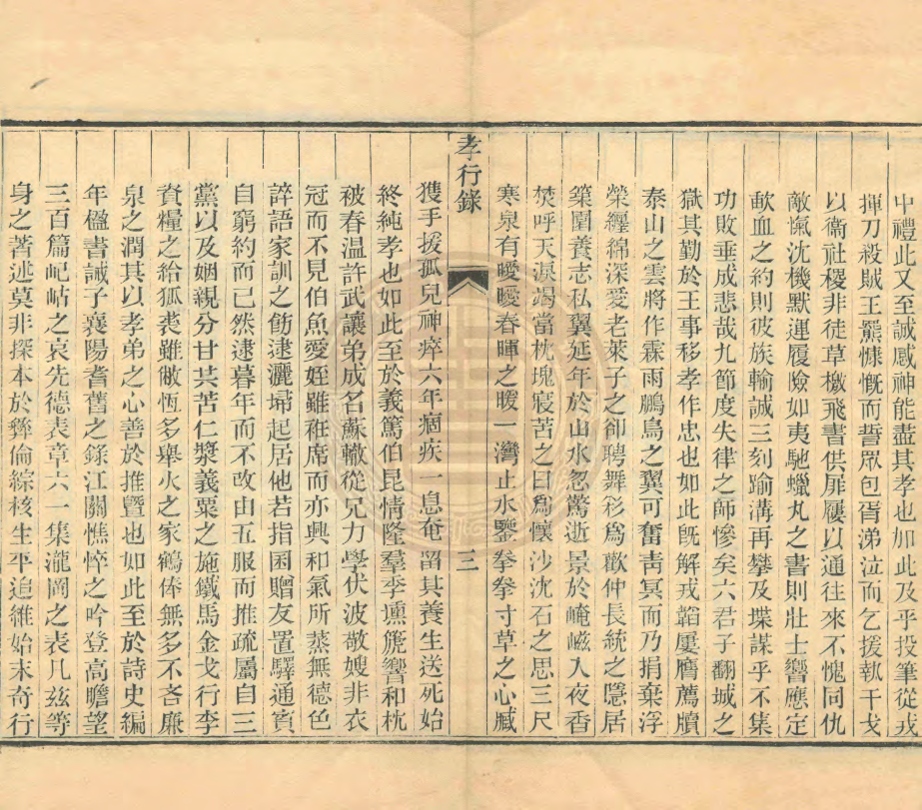 中禮此又至誠感神能盡其孝也如此及乎投筆從戎
揮刀殺賊王羆慷慨而誓眾包胥涕泣而乞援執干戈
以衞社稷非徒草檄飛書供屝屨以通往來不愧同仇
敵愾沈機默運履險如夷馳蠟丸之書則壯士響應定
歃血之約則彼族輸誠三刻踰溝再攀及堞謀乎不集
功敗垂成悲哉九節度失律之師慘矣六君子翻城之
獄其勤於王事移孝作忠也如此旣解戎韜屢膺薦牘
泰山之雲將作霖雨鵬鳥之翼可奮靑冥而乃捐棄浮
榮纏綿深愛老萊子之卻聘舞衫爲歡仲長統之隱居
築園養志私冀延年於山水忽驚逝景於崦嵫入夜香
焚呼天淚竭當枕塊寢苫之日爲懷沙沈石之思三尺
寒泉有曖曖春暉之暖一灣止水鑒拳拳寸草之心臧
孝行錄
三
獲手援孤兒神瘁六年痼疾一息奄留其養生送死始
終純孝也如此至於義篤伯昆情隆羣季壎篪響和枕
被春温許武讓弟成名蘇轍從兄力學伏波敬嫂非衣
冠而不見伯魚愛姪雖袵席而亦興和氣所蒸無德色
誶語家訓之飭逮灑埽起居他若指囷贈友置驛通賓
自窮約而已然逮暮年而不改由五服而推疏屬自三
黨以及姻親分甘共苦仁漿義粟之施鐵馬金戈行李
資糧之給狐裘雖敝恆多舉火之家鶴俸無多不吝廉
泉之潤其以孝弟之心善於推曁也如此至於詩史編
年楹書誡子襄陽耆舊之錄江關憔悴之吟登高瞻望
三百篇屺岵之哀先德表章六一集瀧岡之表凡兹等
身之著述莫非探本於彝倫綜核生平追維始末奇行